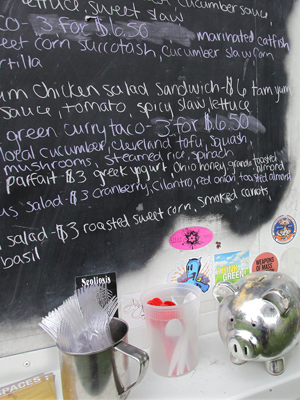 cucumber sauce,
lettuce, sweet slaw
CO-3 for $6.50
marinated catfish
eet corn succotash, cucumber slaw corn
rtilla
um Chicken salad Sandwich-$6 tam yum
sauce, tomato, spicy slaw lettuce
green curry taco-3 for $6.50
local cucumber, cleveland tofu, squash,
mushrooms, steamed rice, spinach
parfait-$3 greek yogurt, Ohio honey, granola toasted
almond
us salad-$3 cranberry, cilantro, red onion toasted almond
salad-$3 roasted sweet corn, smoked carrots,
basil
Scoliosis
GREEN
WEAPONS
OF MASS
SPACES